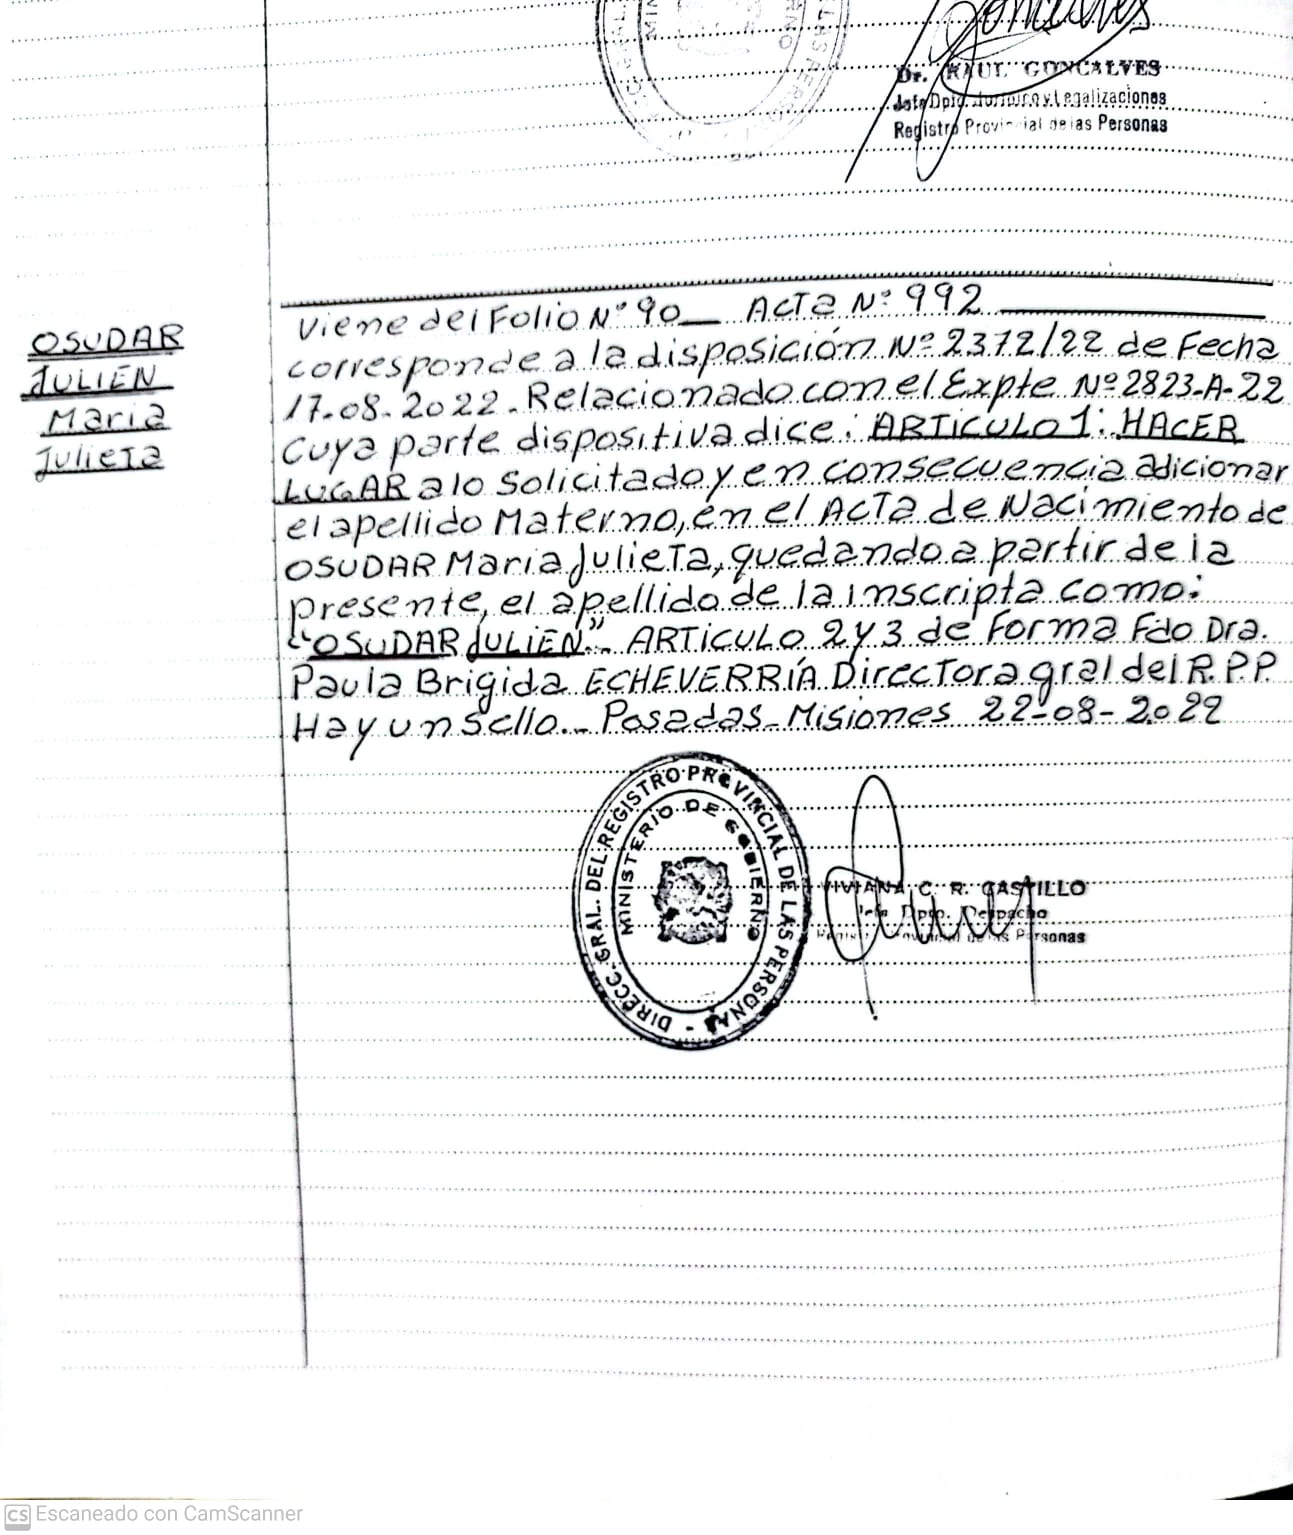 Goncalves
Dr. RAUL GONCALVES
Jefe Dpto. Jurídico y Legalizaciones
Registro Provincial de las Personas
OSUDAR
JULIEN
Maria
Julieta
Viene del Folio N° 90 Acta N° 992
corresponde a la disposición Nº 2372/22 de Fecha
17.08.2022. Relacionado con el Expte Nº 2823-A-22
Cuya parte dispositiva dice: ARTICULO 1: HACER
LUGAR a lo Solicitado y en consecuencia adicionar
el apellido Materno, en el Acta de Nacimiento de
OSUDAR Maria Julieta, quedando a partir de la
presente, el apellido de la inscripta como:
"OSUDAR JULIEN". ARTICULO 2 y 3 de Forma Fdo Dra.
Paula Brigida ECHEVERRÍA Directora gral del R.P.P.
Hay un sello... Posadas-Misiones 22-08-2022
DIRECC. GRAL. DEL REGISTRO PROVINCIAL DE LAS PERSONAS -
MINISTERIO DE GOBIERNO
VIVIANA C. R. CASTILLO
Jefa Dpto. Despacho
Registro Provincial de las Personas
CS Escaneado con CamScanner